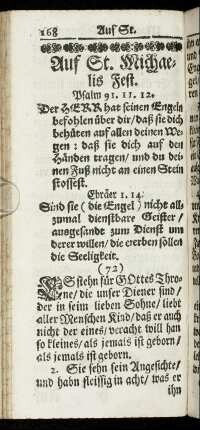 168 Auf St.
Auf St. Michae-
lis Fest.
Psalm 91. 11. 12.
Der HERR hat seinen Engeln
befohlen über dir/daß sie dich
behüten auf allen deinen We-
gen: daß sie dich auf den
Händen tragen/ und du dei-
nen Fuß nicht an einen Stein
stossest.
Ebräer 1. 14.
Sind sie (die Engel) nicht all-
zumal dienstbare Geister/
ausgesandt zum Dienst um
derer willen/die ererben sollen
die Seeligkeit.
(72)
ES stehn für GOttes Thro-
ne/die unser Diener sind/
der in seim lieben Sohne/ liebt
aller Menschen Kind/daß er auch
nicht der eines/veracht will han
so kleines/als jemals ist geborn/
als jemals ist geborn.
2. Sie sehn sein Angesichte/
und habn fleissig in acht/ was er
ihn